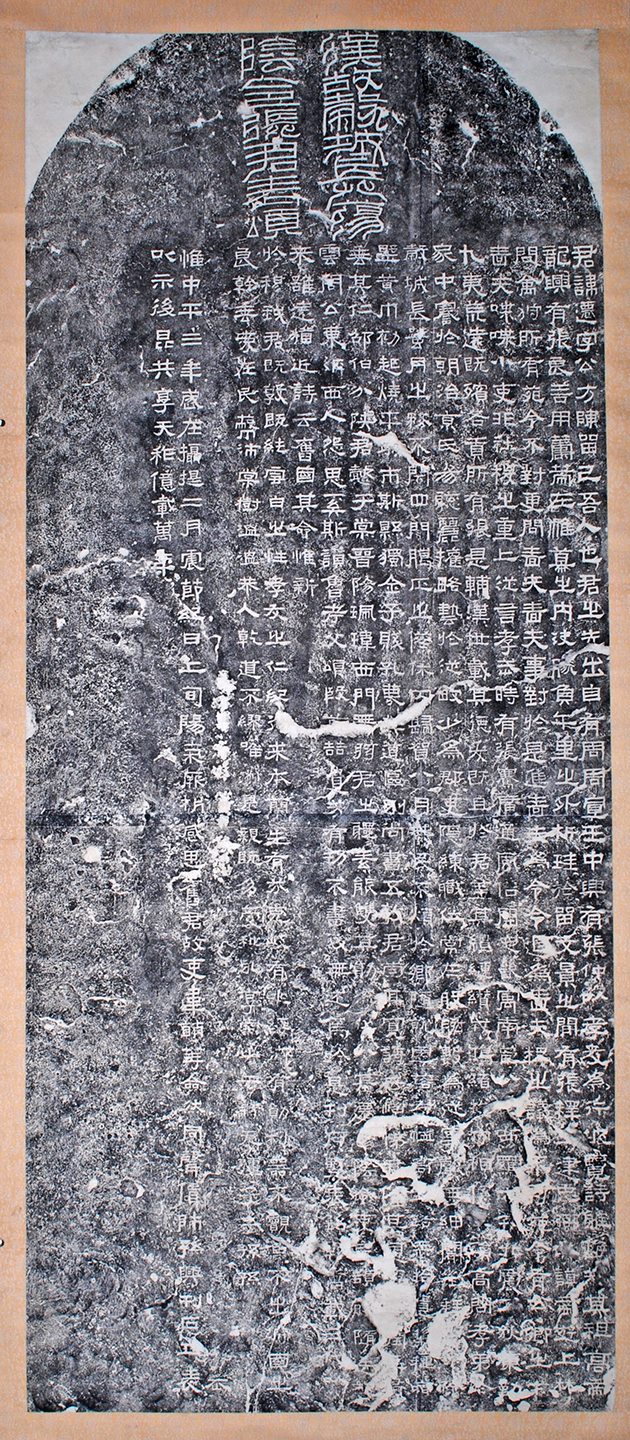 漢故穀城長蕩
陰令張君表頌
君諱遷字公方陳留己吾人也君之先出自有周周宣王中興有張仲以孝友為行披覽詩雅煥知其祖高帝
龍興有張良善用籌策在帷幕之內決勝負千里之外析珪於留文景之間有張釋之建忠弼之謨帝遊上林
問禽狩所有苑令不對更問嗇夫嗇夫事對於是進嗇夫為令令退為嗇夫釋之議為不可苑令有公卿之才
嗇夫喋喋小吏非社稷之重上從言孝武時有張騫廣通風俗開定畿寓南苞八蠻西羈六戎北震五狄東勤
九夷荒遠既殯各貢所有張是輔漢世載其德爰既且於君蓋其繵縺纘戎鴻緒牧守相係不殞高問孝弟於
家中謇於朝治京氏易聰麗權略藝於從畋少為郡吏隱練職位常在股肱數為從事聲無細聞徵拜郎中除
穀城長蠶月之務不閉四門臘正之僚休囚歸賀八月筭民不煩於鄉隨就虛落存恤高年路無拾遺犁種宿
野黃巾初起燒平城市斯縣獨全子賤孔蔑其道區別尚書五教君崇其寬詩云愷悌君隆其恩東里潤色君
垂其仁邵伯分陝君懿于棠晉陽珮瑋西門帶弦君之體素能雙其勛流化八基遷蕩陰令吏民頡頏隨送如
雲周公東征西人怨思奚斯讚魯考父頌殷前喆遺芳有功不書後無述焉於是刊石豎表銘勒萬載三代以
來雖遠猶近詩云舊國其命惟新
於穆我君既敦既純雪白之性孝友之仁紀行來本蘭生有芬克岐有兆綏御有勛利器不覿魚不出淵國之
良幹垂愛在民蔽沛棠樹溫溫恭人乾道不繆唯淑是親既多受祉永享南山干祿無疆子子孫孫
惟中平三年歲在攝提二月震節紀日上旬陽氣厥析感思舊君故吏韋萌等僉然同聲賃師孫興刊石立表
以示後昆共享天祚億載萬年